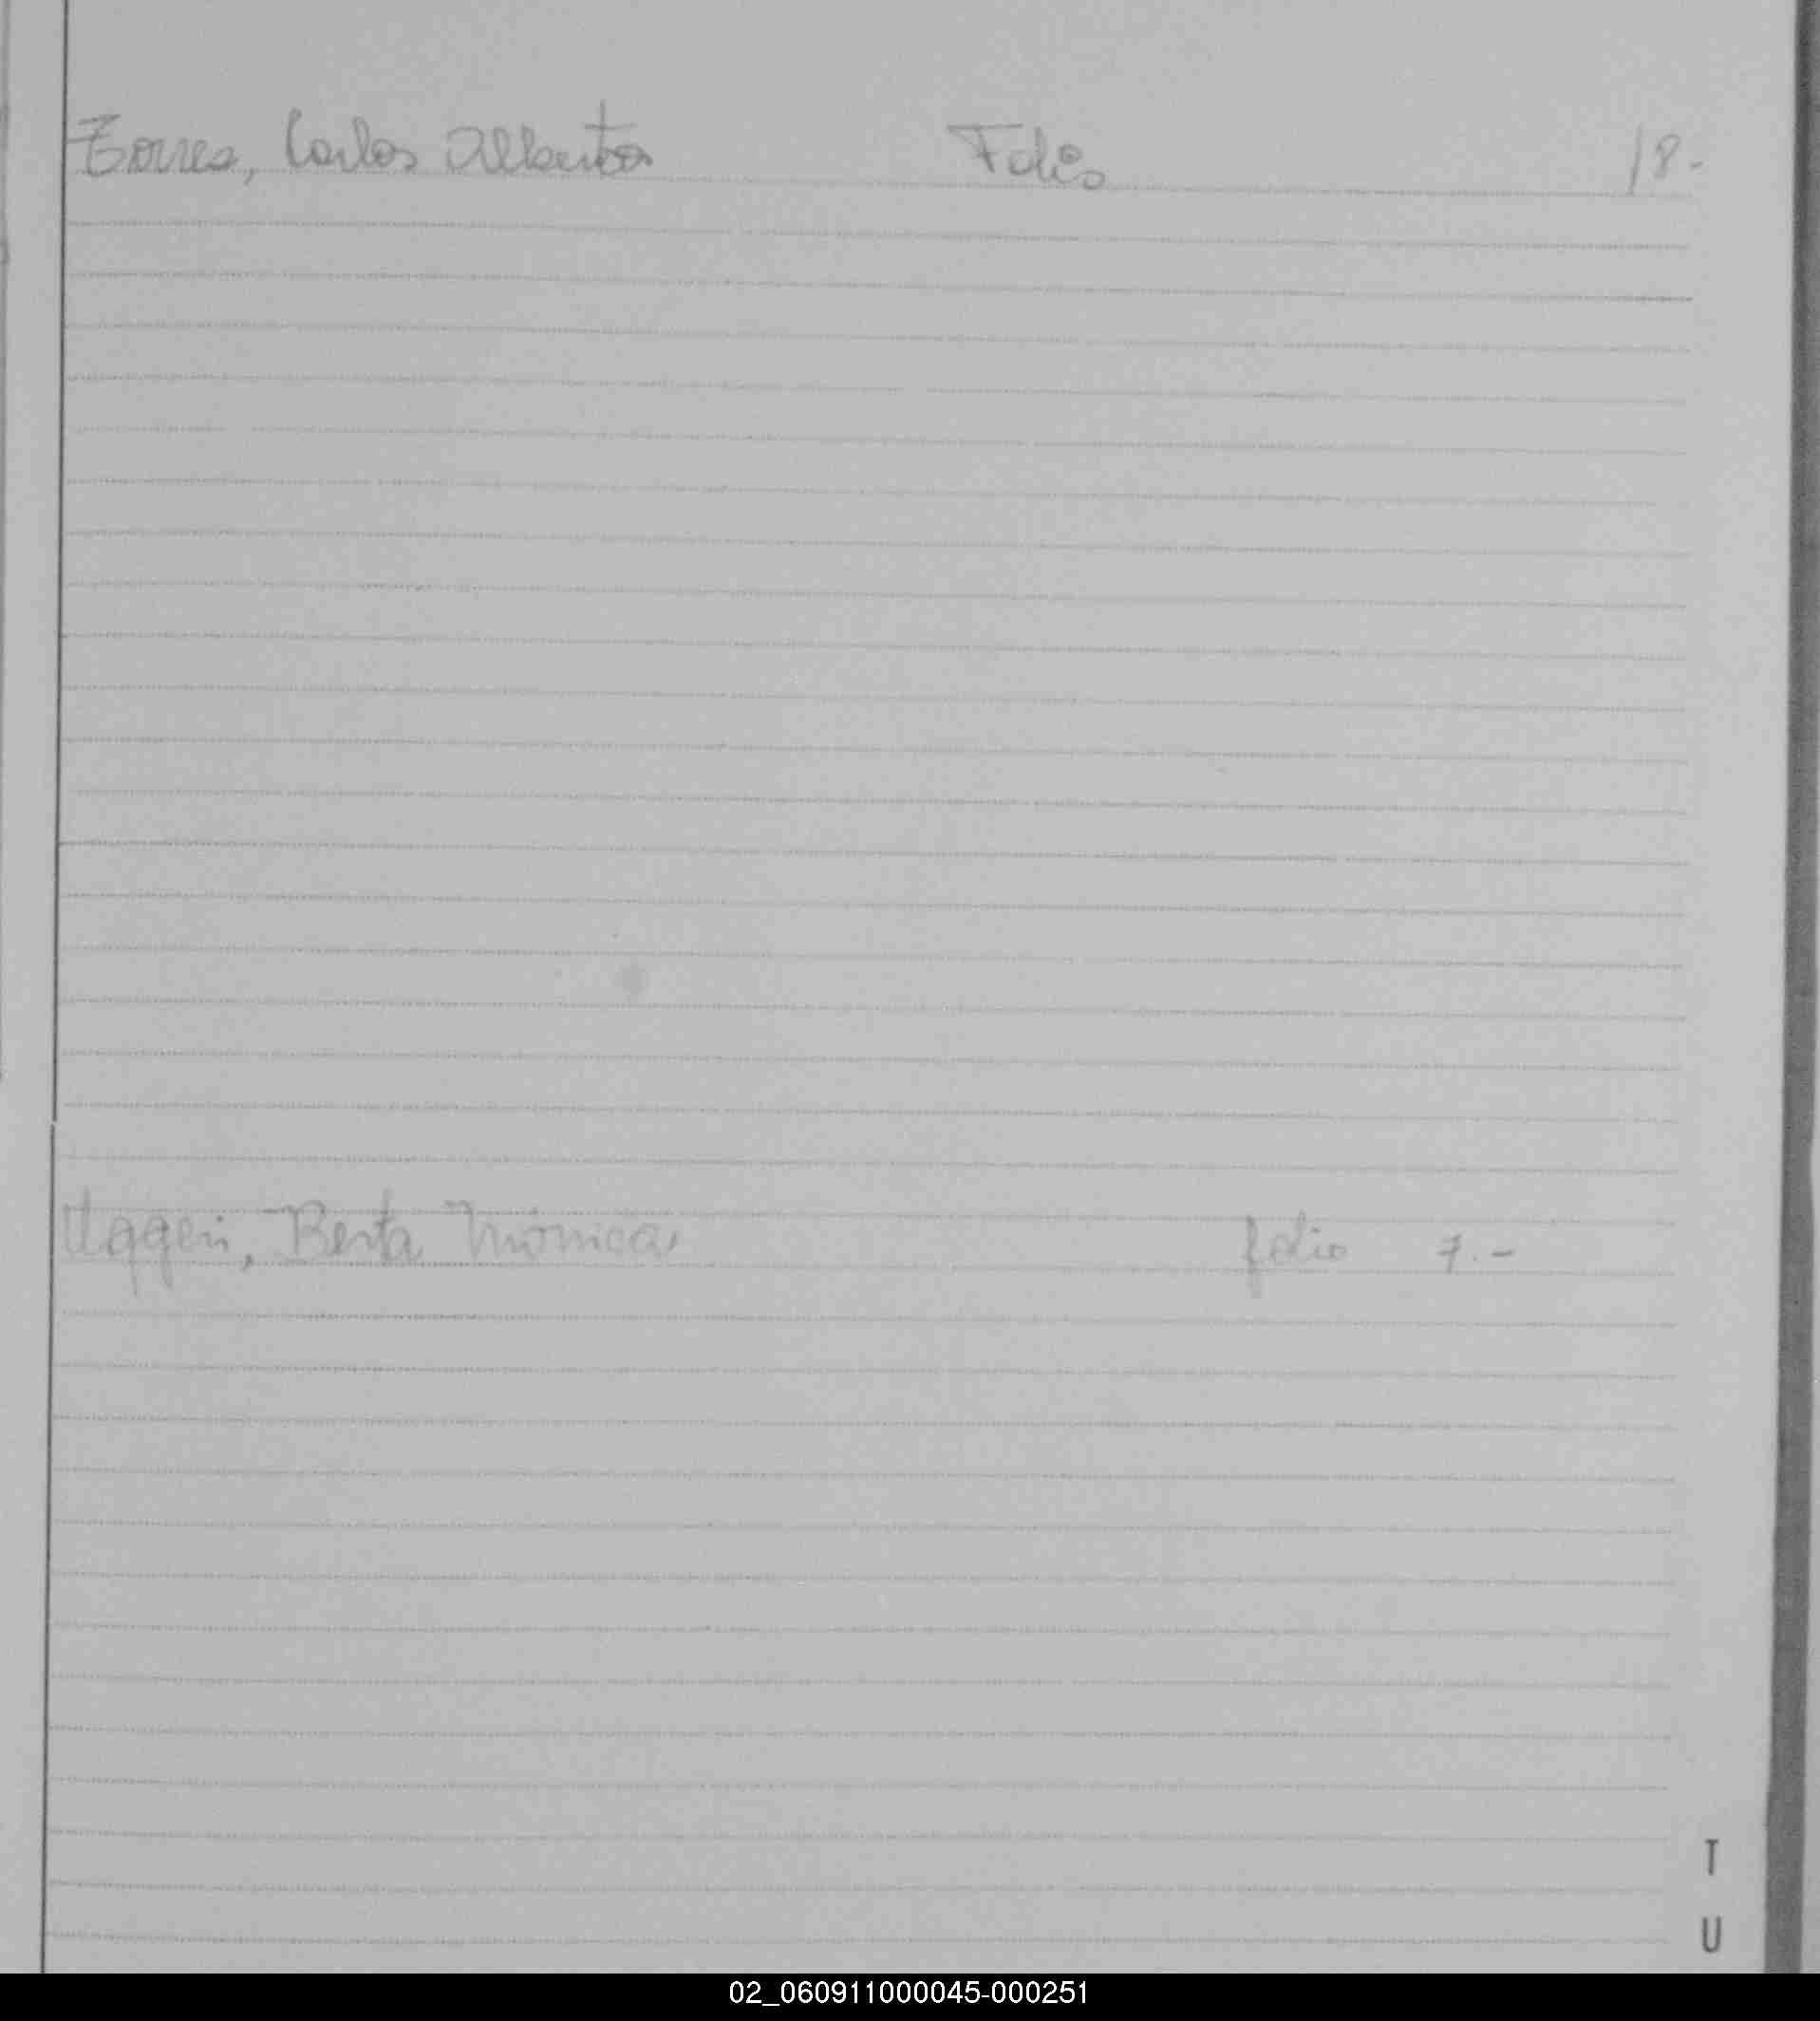 Torres, Carlos Alberto Folio 18.-
Uggeri, Berta Mónica, folio 7.-
T
U
02_060911000045-000251